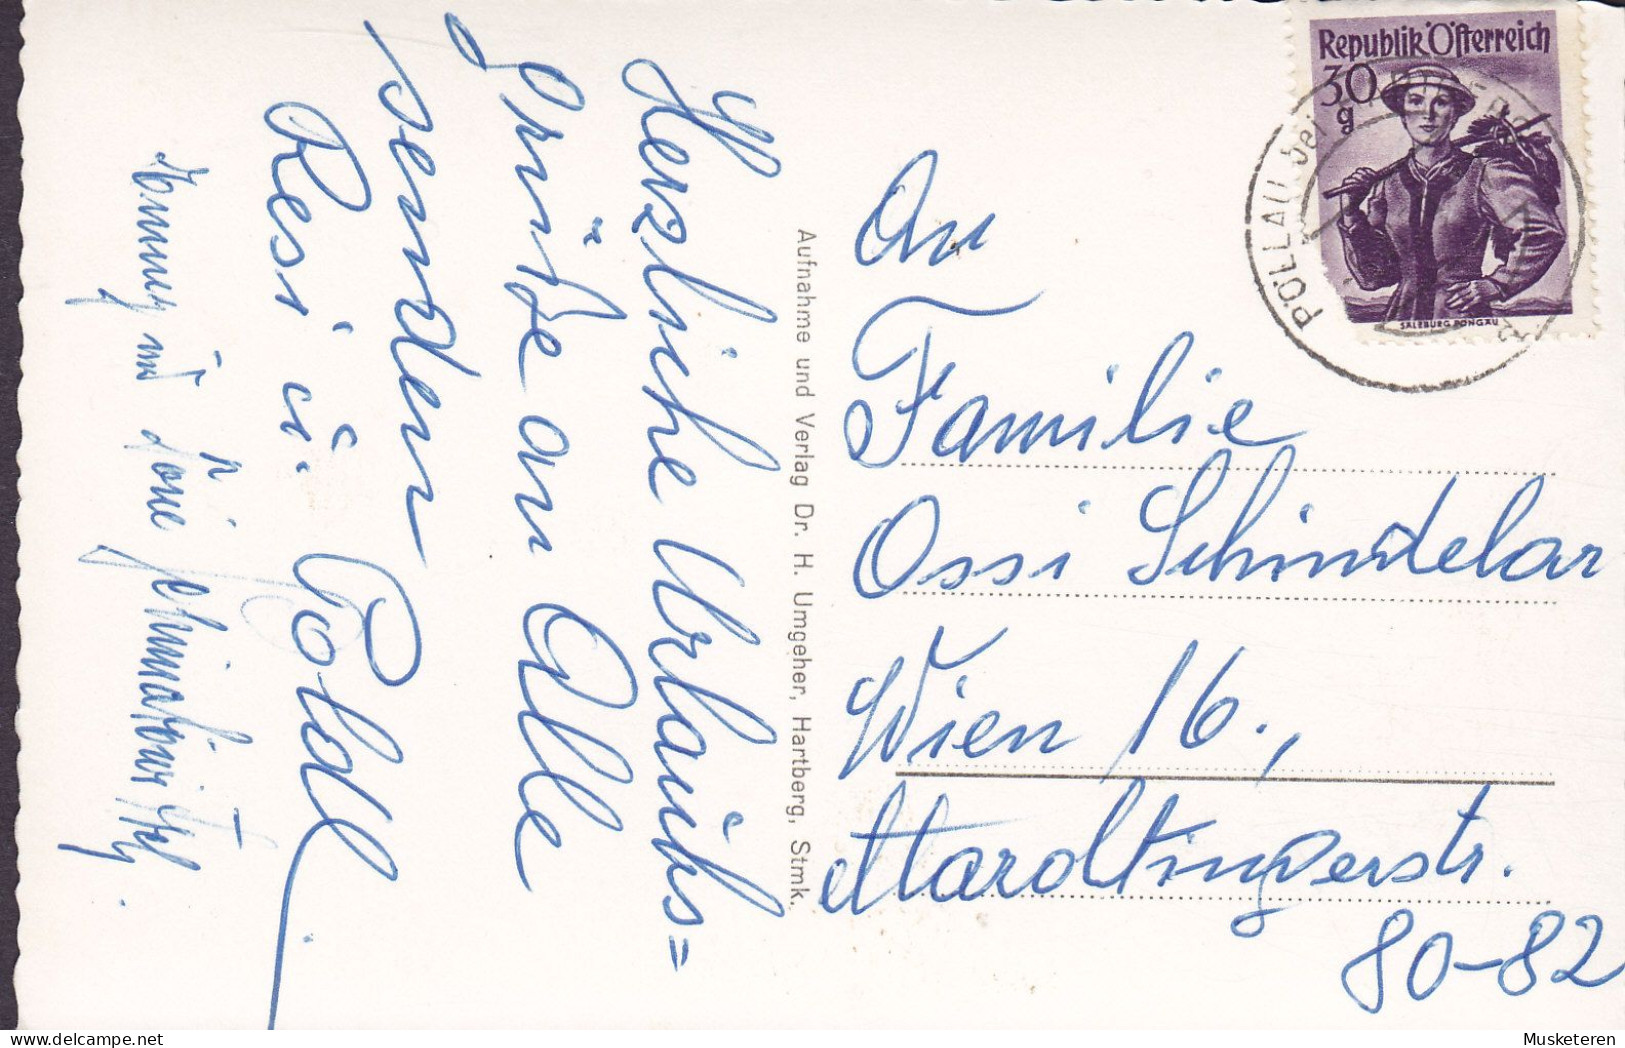 Herzliche Urlaubs=
grüße an Alle
senden
Resi u. Poldl
und
Aufnahme und Verlag Dr. H. Umgeher, Hartberg, Stmk.
Republik Österreich
30
g
SALZBURG PONGAU
PÖLLAU bei
An
Familie
Ossi Schindelar
Wien 16.,
Maroltingerstr.
80-82
Musketeren
delcampe.net